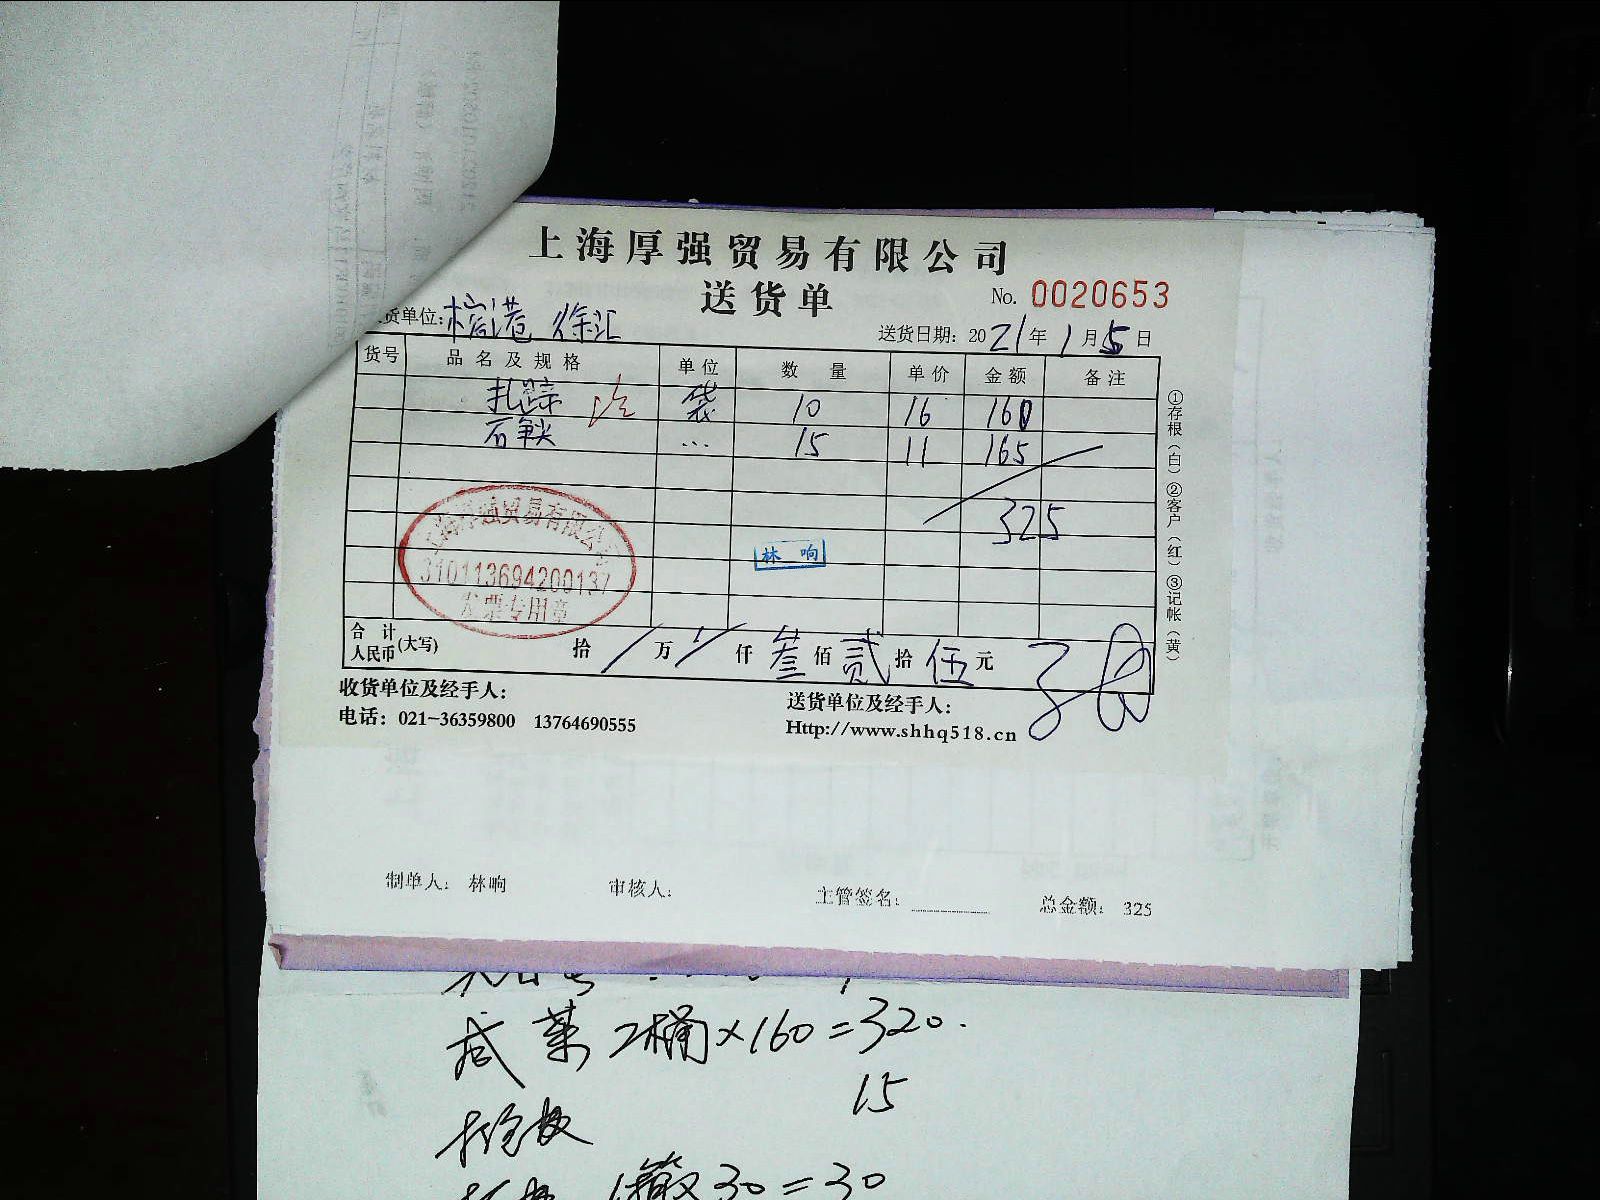 上海厚强贸易有限公司
送货单 No. 0020653
货单位: 榕港 徐汇 送货日期: 2021年1月5日
货号 品名及规格 单位 数量 单价 金额 备注
扎蹄 袋 10 16 160
石斛 ... 15 11 165
325
上海厚强贸易有限公司
310113694200137
发票专用章
林响
合计人民币(大写) 拾 万 仟 叁 佰 贰 拾 伍 元
①存根(白) ②客户(红) ③记帐(黄)
收货单位及经手人: 送货单位及经手人:
电话: 021-36359800 13764690555 Http://www.shhq518.cn
制单人: 林响 审核人: 主管签名: 总金额: 325
咸菜 2桶×160=320.
15
1箱×30=30